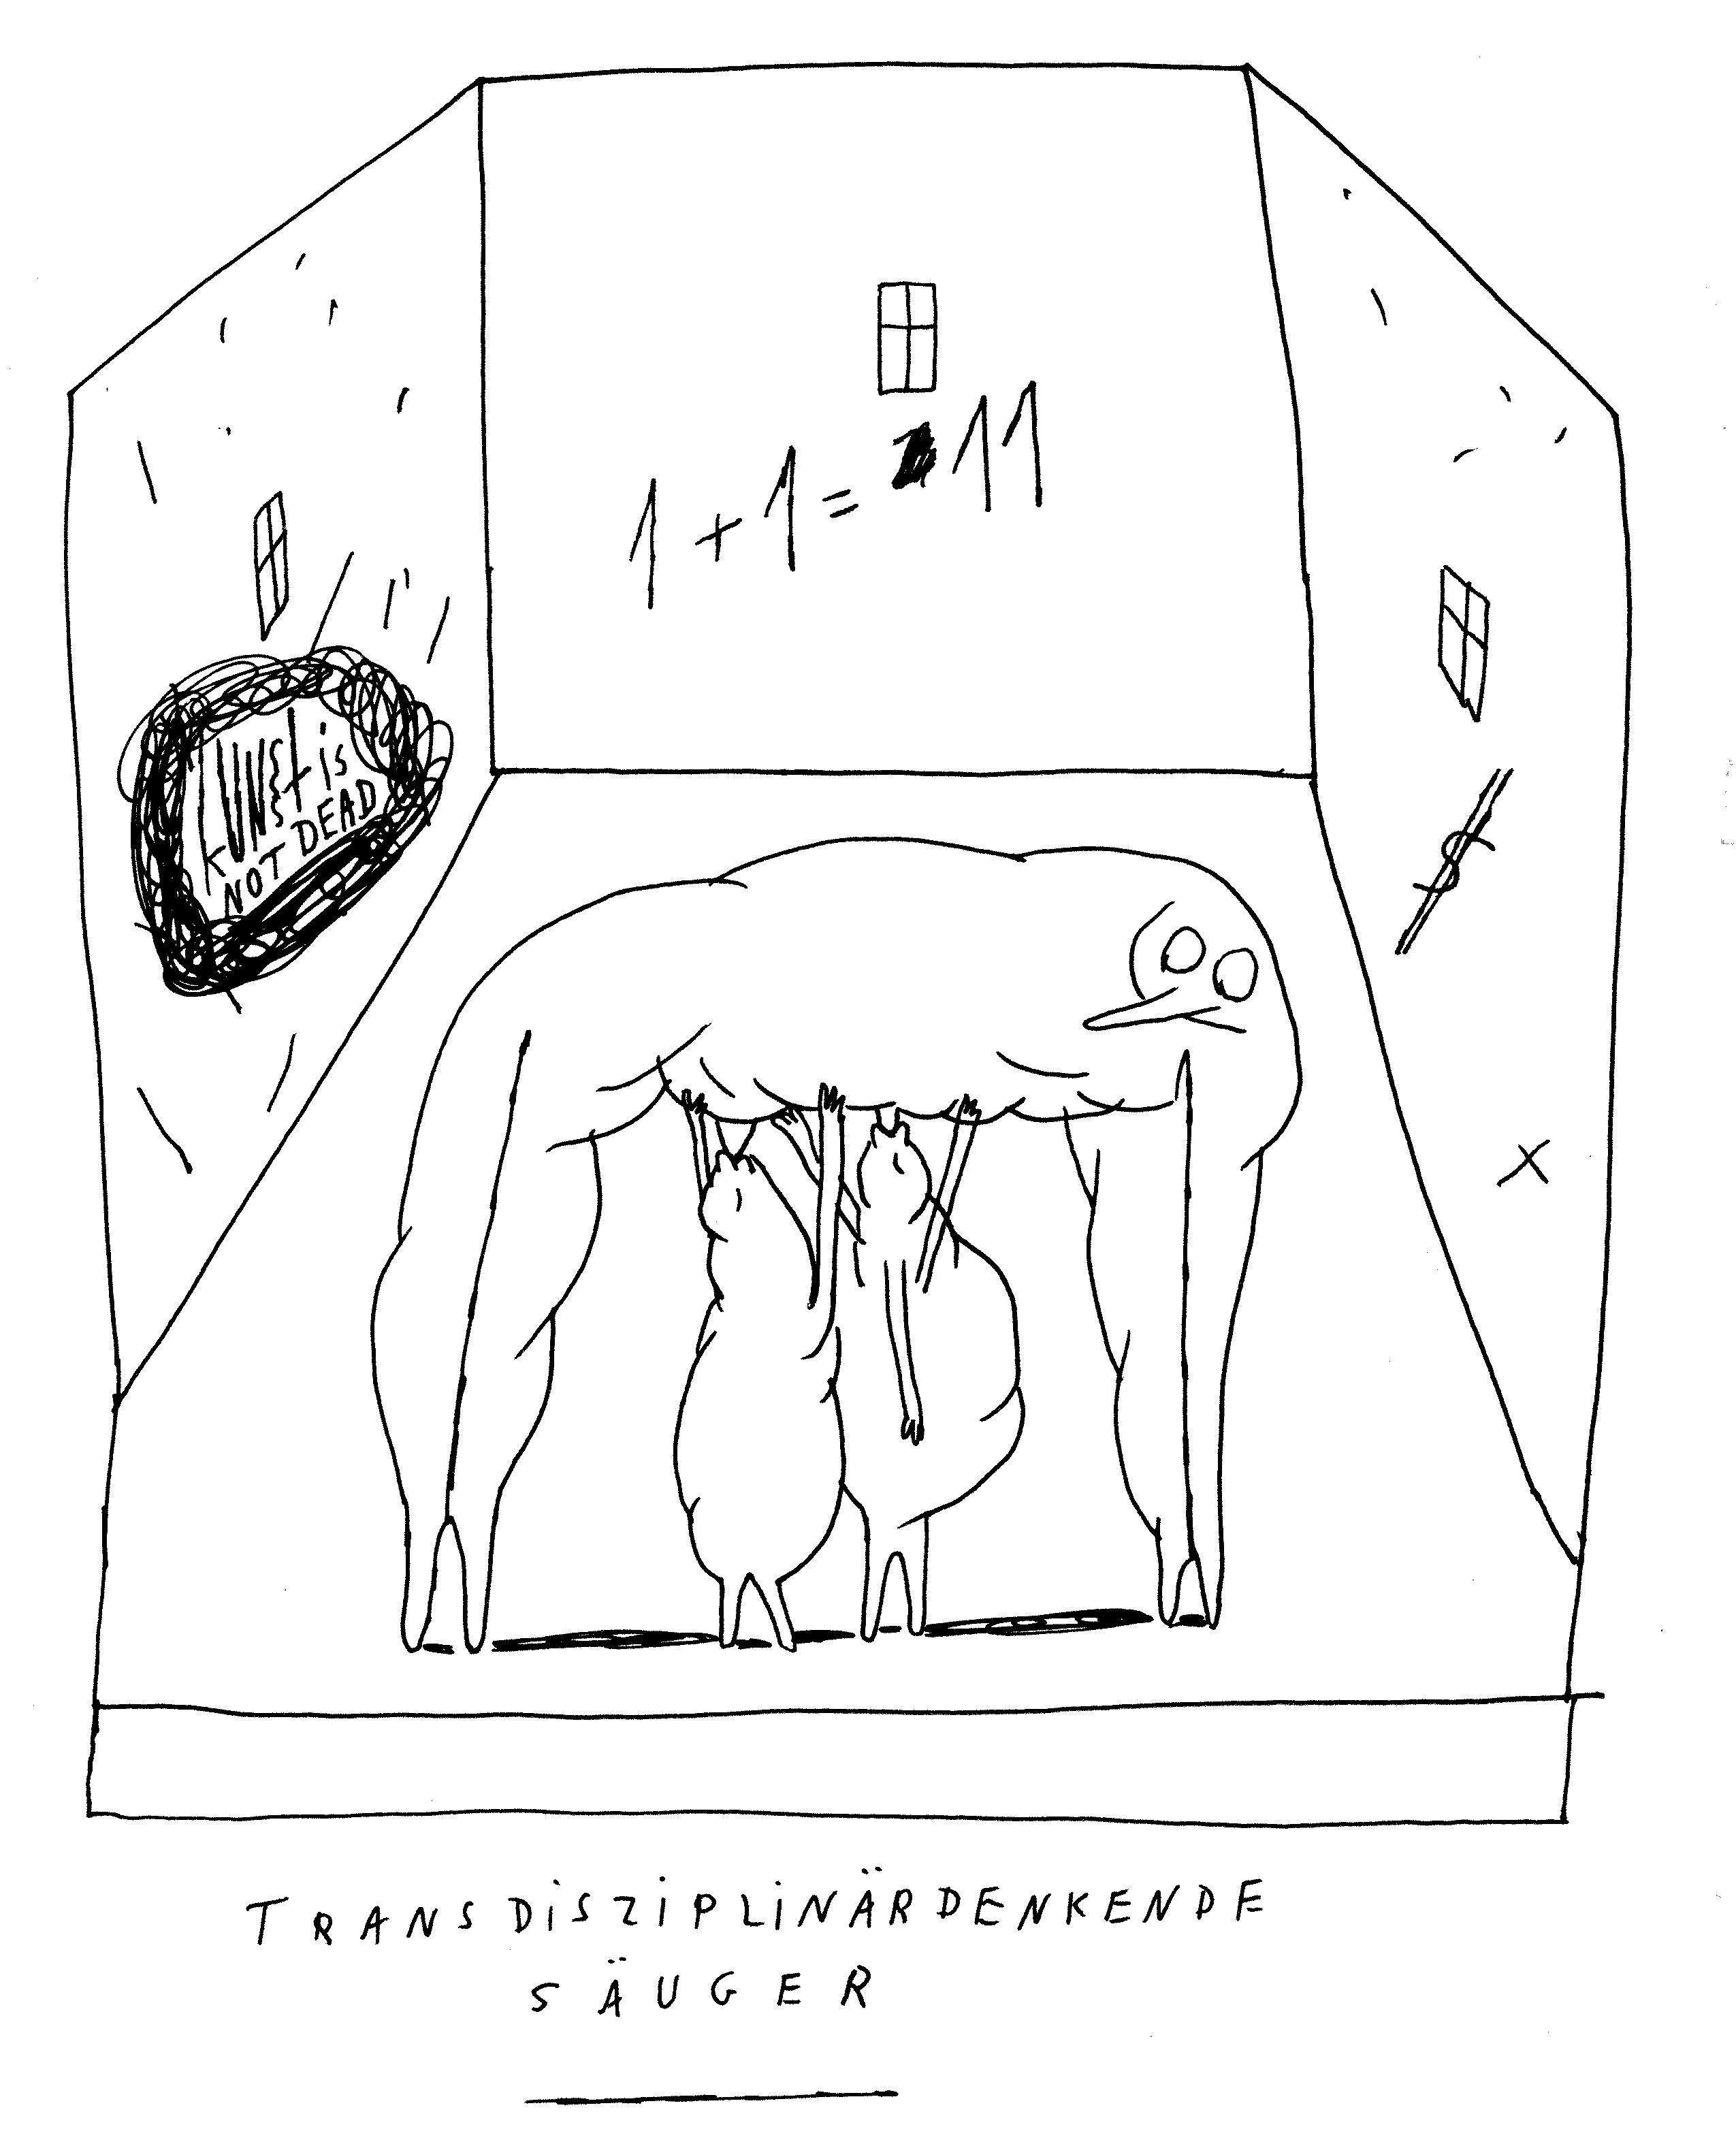 1 + 1 = 11
KUNST is
NOT DEAD
$
X
TRANSDiSZiPLiNÄRDENKENDE
SÄUGER